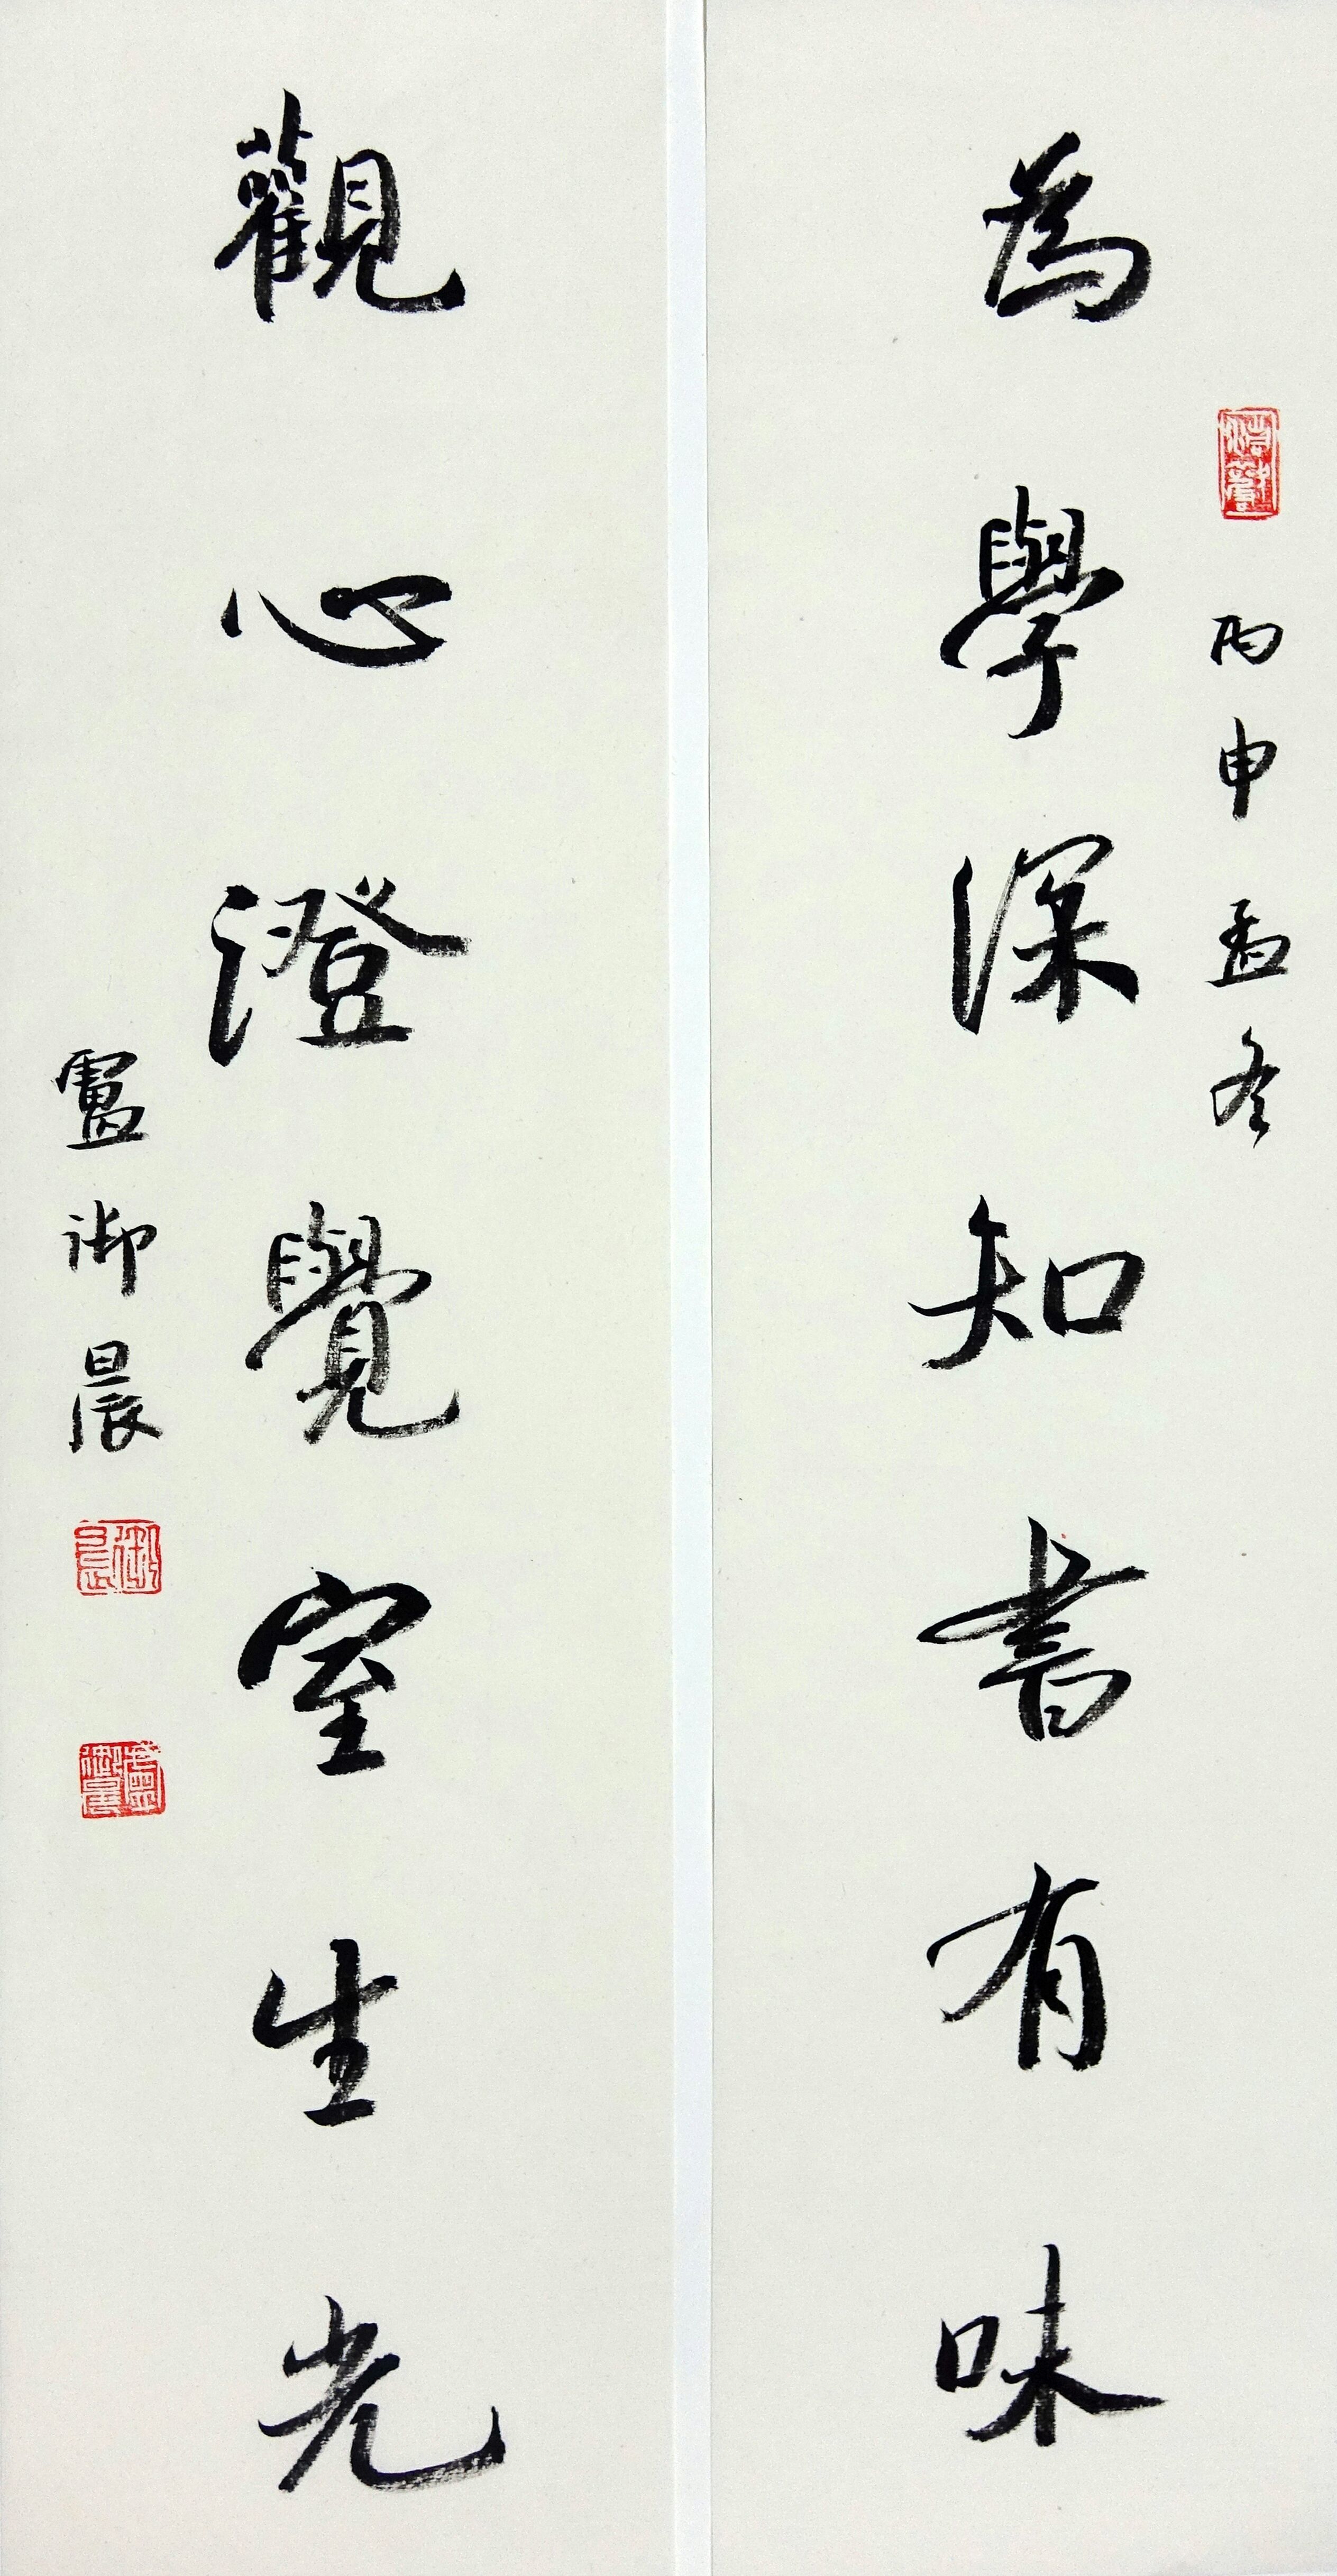 爲學深知書有味
丙申孟冬
觀心澄覺室生光
盧御晨